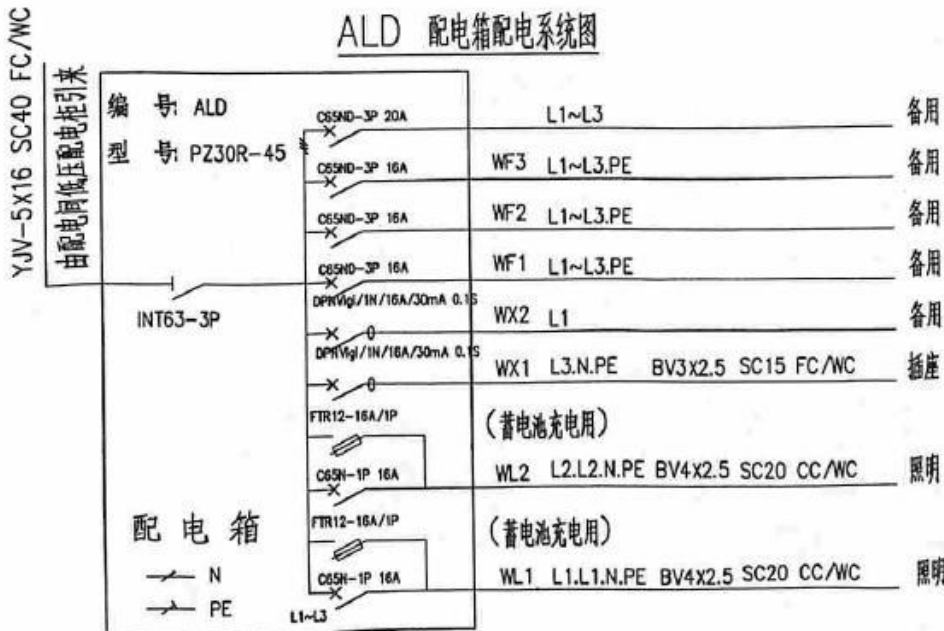 ALD 配电箱配电系统图
YJV-5X16 SC40 FC/WC
由配电间低压配电柜引来
编 号: ALD
型 号: PZ30R-45
INT63-3P
C65ND-3P 20A L1~L3 备用
C65ND-3P 16A WF3 L1~L3.PE 备用
C65ND-3P 16A WF2 L1~L3.PE 备用
C65ND-3P 16A WF1 L1~L3.PE 备用
DPNVigi/1N/16A/30mA 0.1S WX2 L1 备用
DPNVigi/1N/16A/30mA 0.1S WX1 L3.N.PE BV3X2.5 SC15 FC/WC 插座
FTR12-16A/1P (蓄电池充电用)
C65N-1P 16A WL2 L2.L2.N.PE BV4X2.5 SC20 CC/WC 照明
FTR12-16A/1P (蓄电池充电用)
C65N-1P 16A WL1 L1.L1.N.PE BV4X2.5 SC20 CC/WC 照明
L1~L3
配 电 箱
N
PE